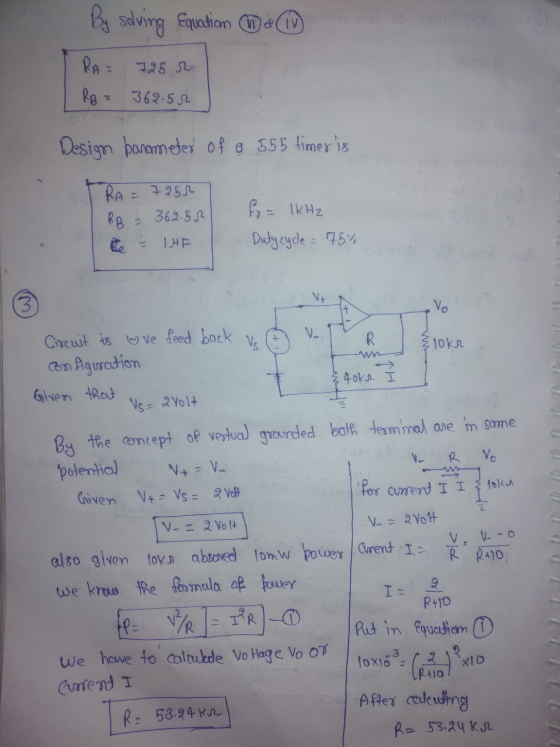 By solving Equation VI & IV
RA = 725 Ω
RB = 362.5 Ω
Design parameter of a 555 timer is
RA = 725Ω
RB = 362.5Ω
C = 1μF
fr = 1kHz
Duty cycle = 75%
3
Circuit is (-)ve feed back
configuration
Given that Vs = 2 Volt
Vs
V+
V-
Vo
R
I
40kΩ
10kΩ
By the concept of vertual grounded both terminal are in same
potential V+ = V-
Given V+ = Vs = 2 Volt
V- = 2 Volt
also given 10kΩ absored 10mW power
we know the formula of power
P = V²/R = I²R — 1
we have to calculate Voltage Vo or
current I
R = 53.24 KΩ
V- R Vo
I 10kΩ
for current I
V- = 2 Volt
Current I = V/R = V- - 0/R+10
I = 2/R+10
Put in Equation 1
10×10-3 = (2/R+10)² × 10
After calculting
R = 53.24 KΩ